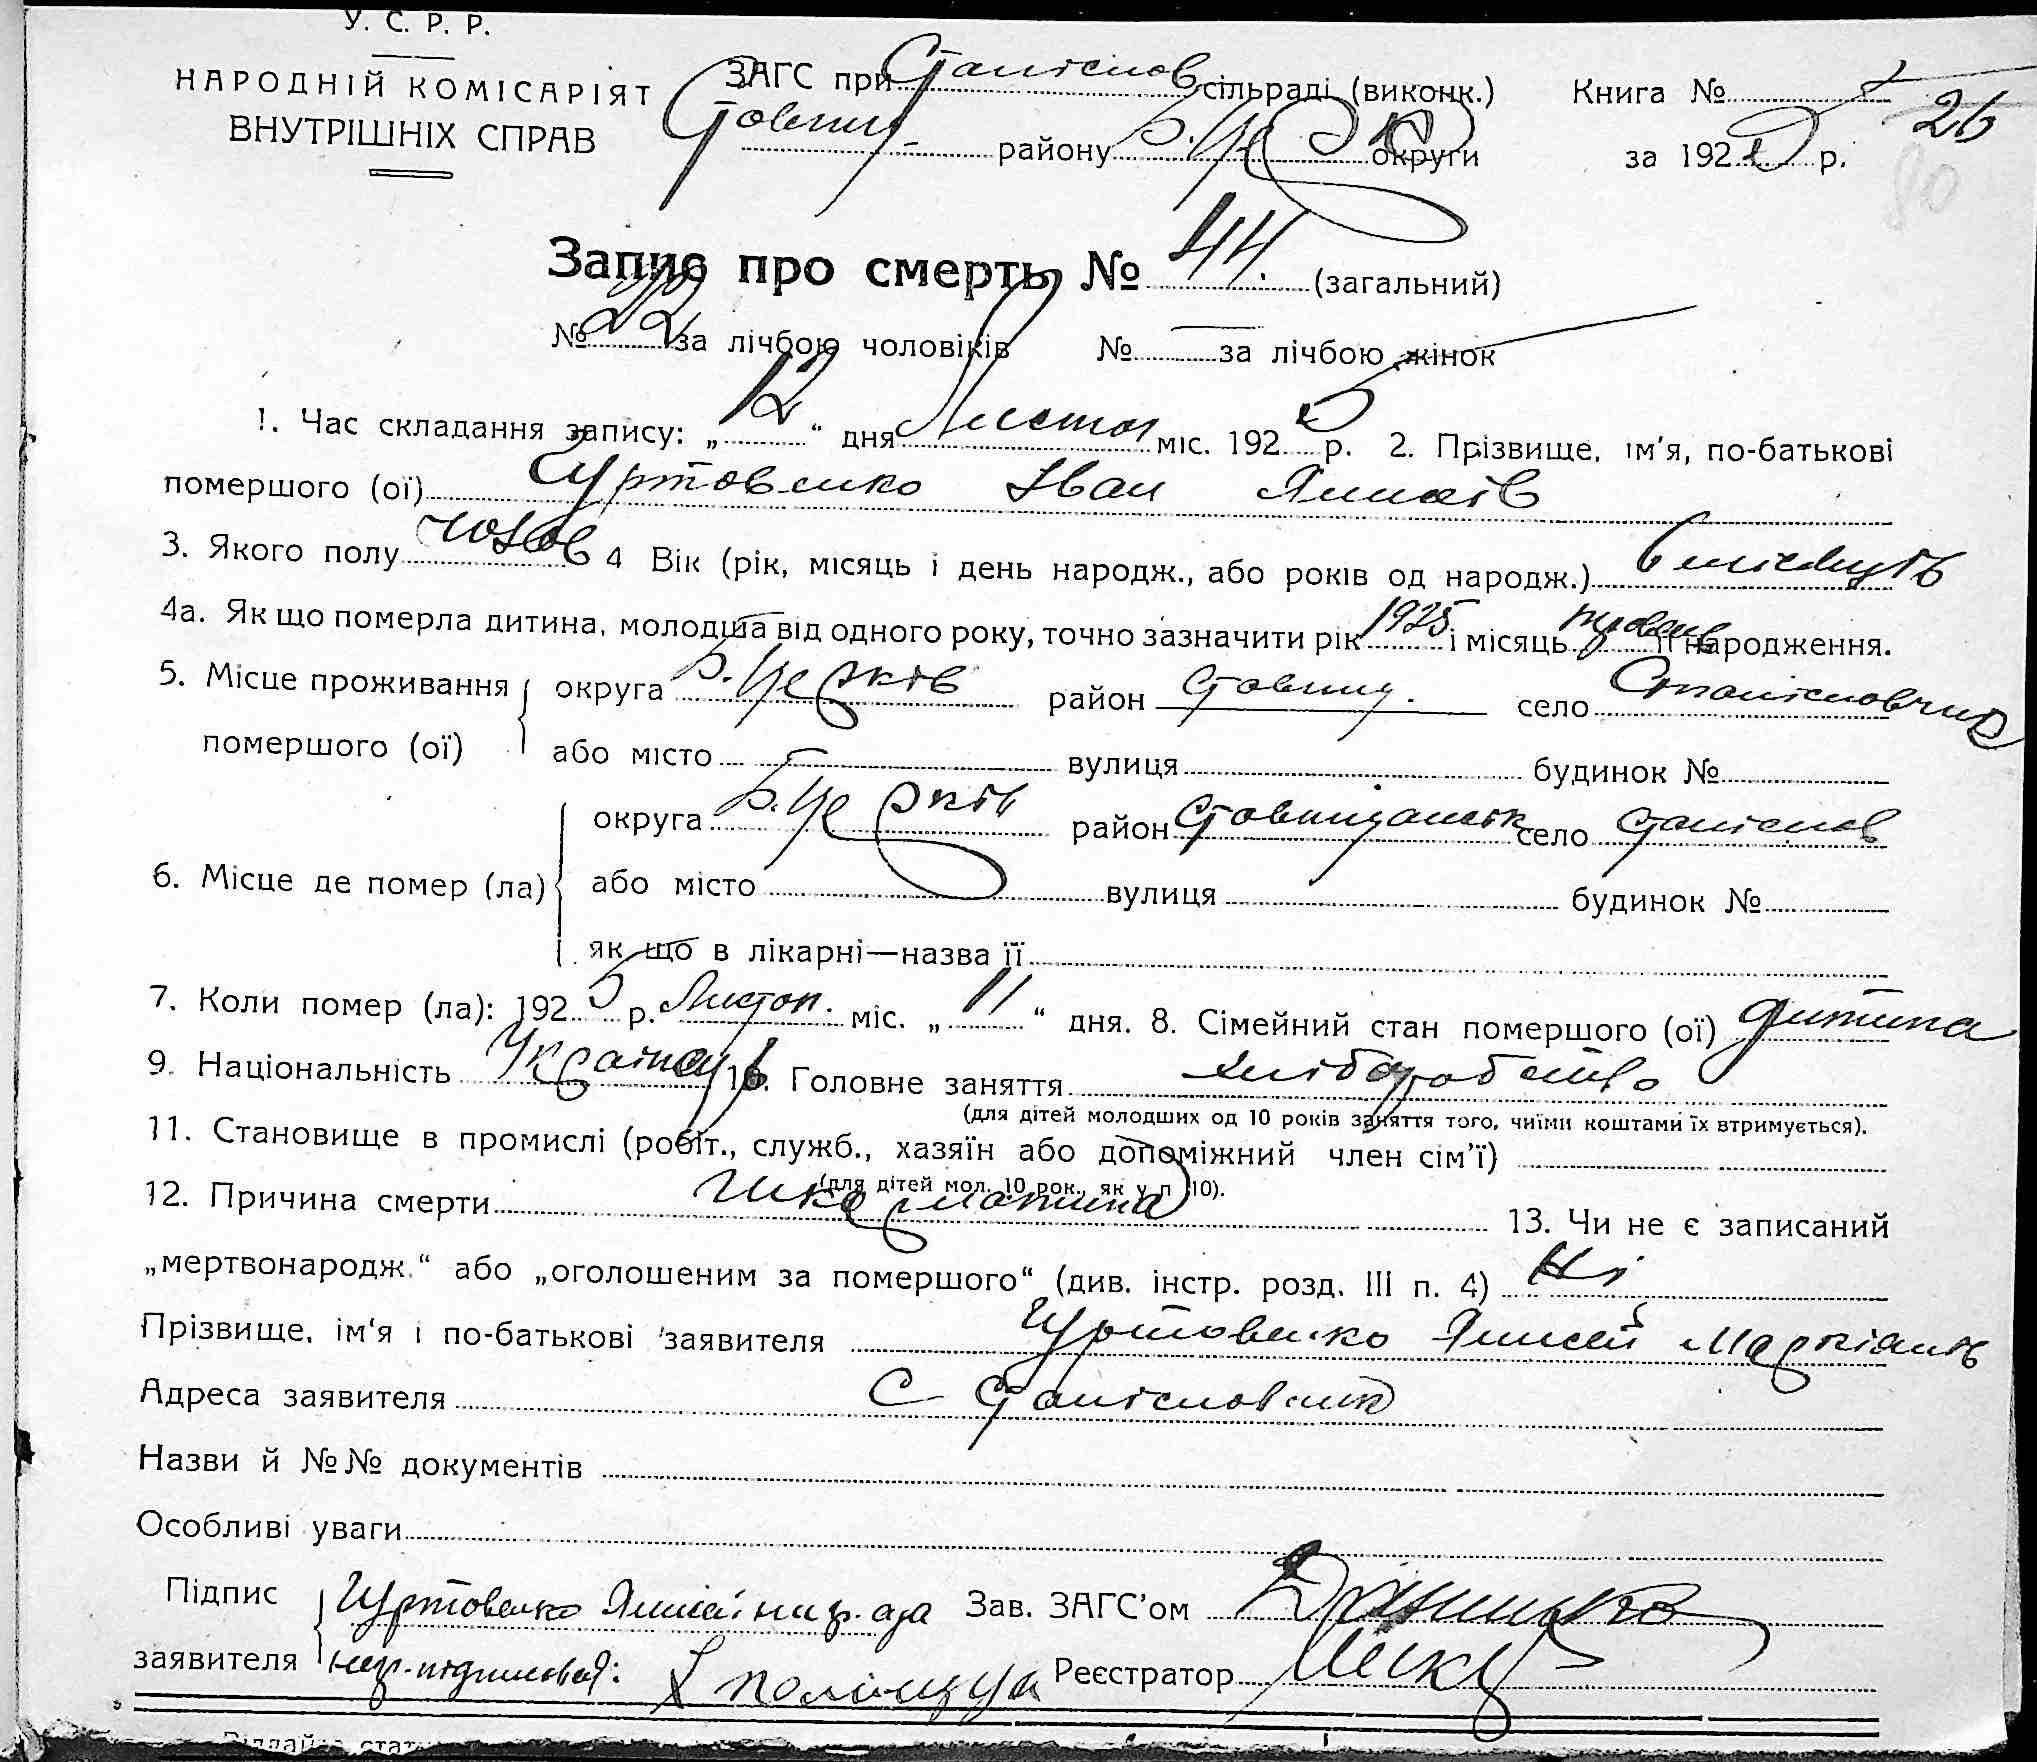 У. С. Р. Р.
НАРОДНІЙ КОМІСАРІЯТ
ВНУТРІШНІХ СПРАВ
ЗАГС при Станіслов сільраді (виконк.)
Ставищ- району Б. Це округи
Книга №
за 192 р.
26
80
Запис про смерть № 44. (загальний)
№ 22 за лічбою чоловіків № — за лічбою жінок
1. Час складання запису: „12“ дня Листоп міс. 1925 р. 2. Прізвище, ім'я, по-батькові
помершого (ої) Гуртовенко Іван
3. Якого полу чолов 4 Вік (рік, місяць і день народж., або років од народж.) 6 місяців
4а. Як що померла дитина, молодша від одного року, точно зазначити рік 1925 і місяць її народження.
5. Місце проживання помершого (ої) округа Б. Церків район Ставищ. село Станіславчик
або місто вулиця будинок №
6. Місце де помер (ла) округа Б. Церків район Ставищанськ село Станіслов
або місто вулиця будинок №
як що в лікарні—назва її
7. Коли помер (ла): 1925 р. Листоп. міс. „11“ дня. 8. Сімейний стан помершого (ої) дитина
9. Національність Українец 10. Головне заняття хліборобство
(для дітей молодших од 10 років заняття того, чиїми коштами їх втримується).
11. Становище в промислі (робіт., служб., хазяїн або допоміжний член сім'ї)
(для дітей мол. 10 рок., як у п 10).
12. Причина смерти 13. Чи не є записаний
„мертвонародж.“ або „оголошеним за помершого“ (див. інстр. розд. III п. 4) Ні
Прізвище, ім'я і по-батькові заявителя Гуртовенко
Адреса заявителя С Станіславчик
Назви й №№ документів
Особливі уваги
Підпис заявителя Гуртовенко Зав. ЗАГС'ом
Реєстратор